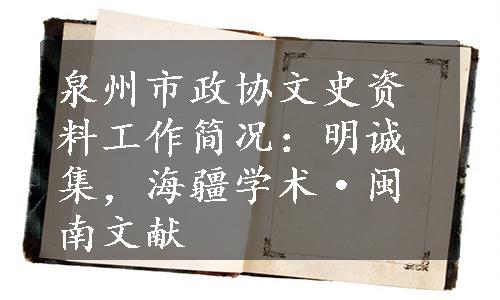 泉州市政协文史资
料工作简况：明诚
集，海疆学术·闽
南文献